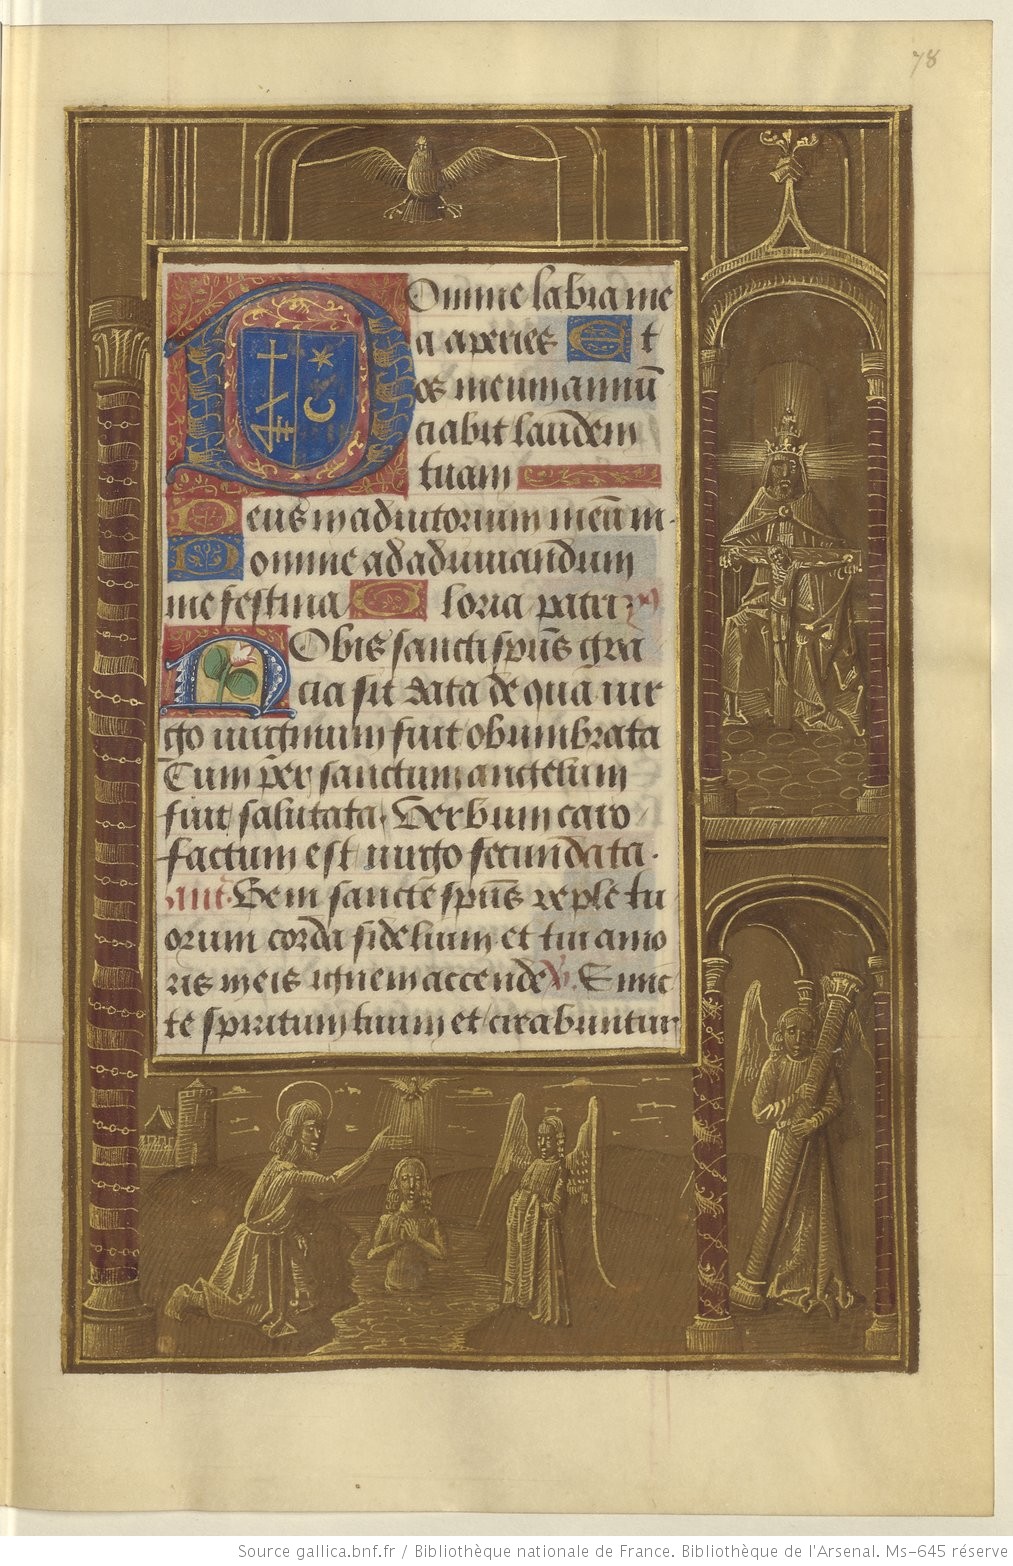 78
Domine labia me
a aperies Et
os meum annun
ciabit laudem
tuam
Deus in adiutorium meū in
Domine ad adiuuandum
me festina Gloria patri
Nobis sancti spūs gra
cia sit data de qua uir
go uirginum fuit obumbrata
Cum per sanctum angelum
fuit salutata. Verbum caro
factum est uirgo fecundata.
Veni sancte spūs reple tu
orum corda fidelium et tui amo
ris in eis ignem accende V. Emit
te spiritum tuum et creabuntur
Source gallica.bnf.fr / Bibliothèque nationale de France. Bibliothèque de l'Arsenal. Ms-645 réserve